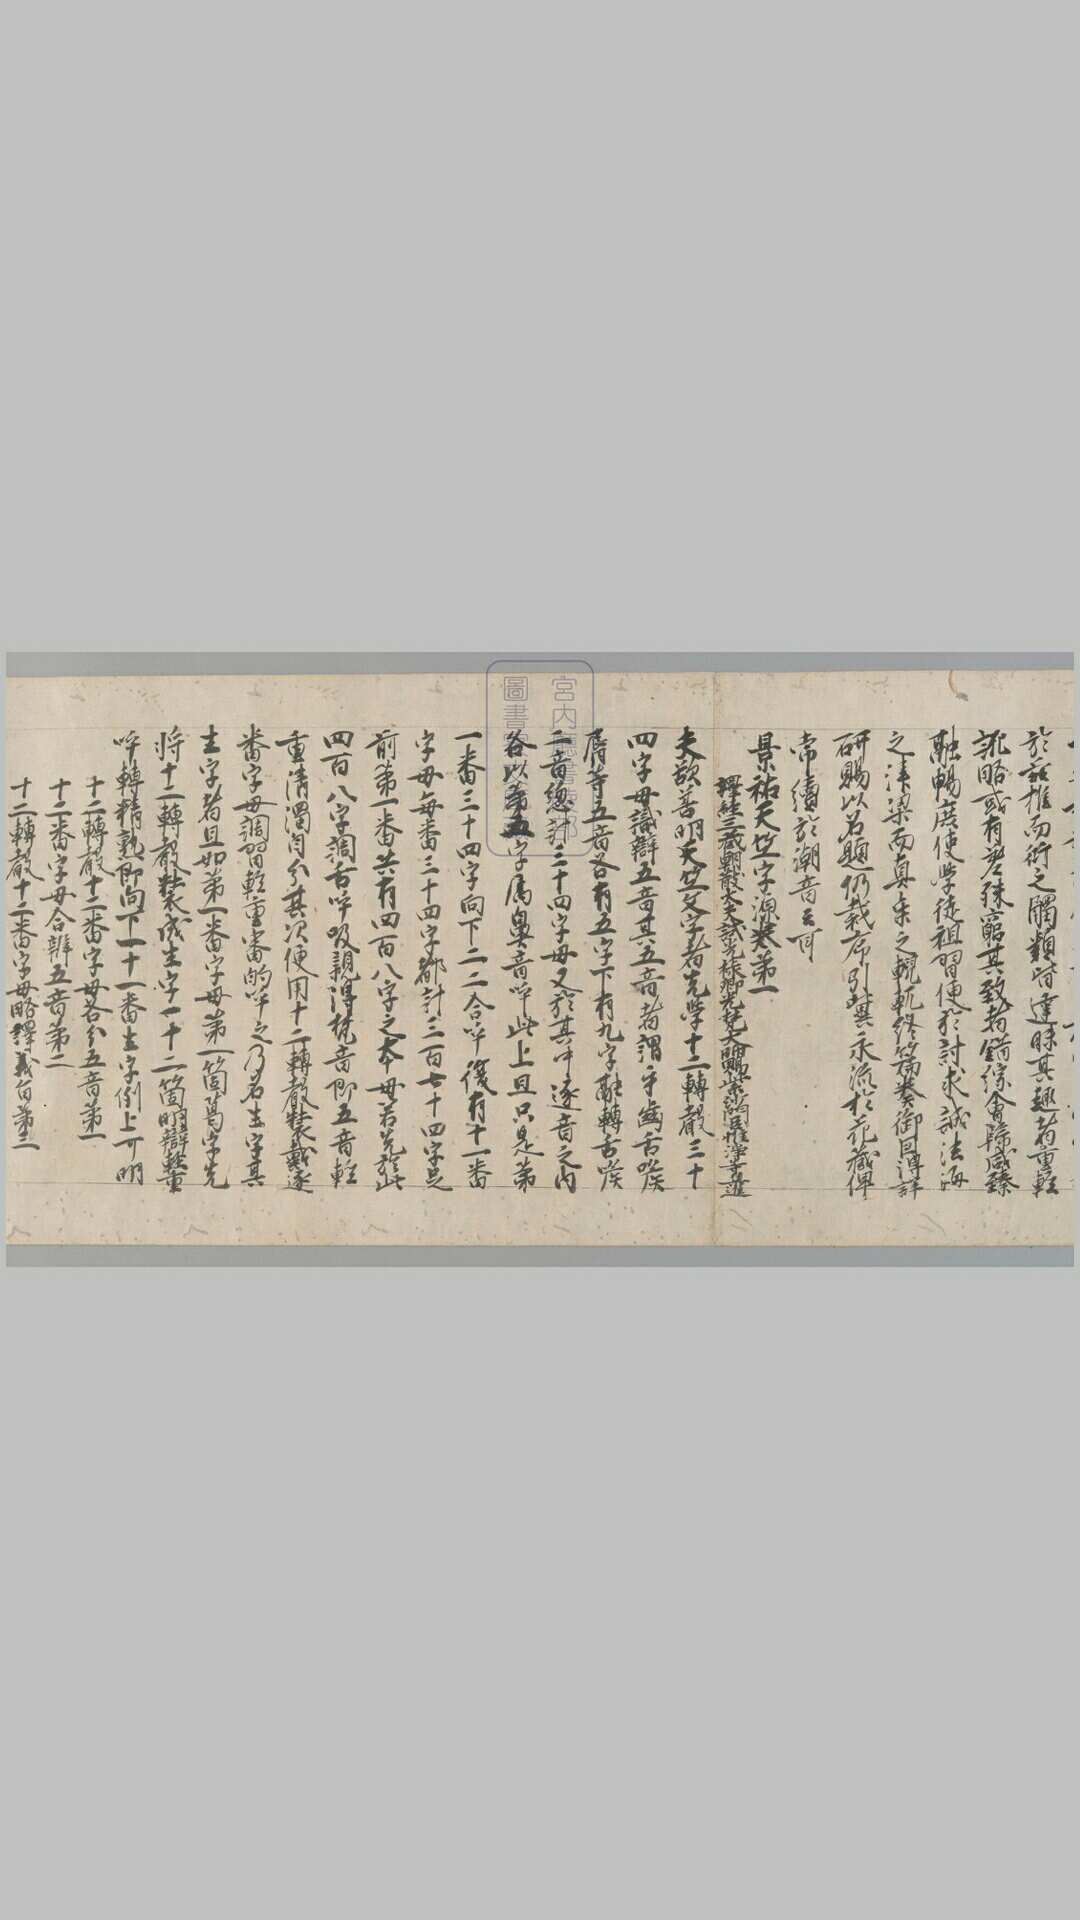 於玆推而衍之觸類皆達昧其趣者重輕
訛略或有差殊窮其致者錯綜會歸咸臻
融暢庶使學徒祖習便於討求誠法海
之津梁而真乘之軌終篇奏御目溥詳
研賜以名題仍裁序引冀永流於花藏俾
常續於潮音云耳
景祐天竺字源卷第一
譯經三藏朝散大夫試光祿卿光梵大師賜紫沙門臣惟淨等進
夫欲善明天竺文字者先學十二轉聲三十
四字母識辯五音其五音者謂牙齒舌喉
脣等五音各有五字下有九字融轉舌喉
二音總計三十四字母又於其中逐音之內
各以第五字屬鼻音呼此上且只是第
一番三十四字向下二二合呼復有十一番
字母每番三十四字都計三百七十四字是
前第一番共有四百八字之本母若先於此
四百八字調舌呼吸親得梵音即五音輕
重清濁自分其次便用十二轉聲裝戴逐
番字母調習輕重審的呼之乃名生字其
生字者且如第一番字母第一箇葛字先
將十二轉聲裝成生字一十二箇明辯輕重
呼轉精熟即向下一十一番生字例上可明
十二轉聲十二番字母各分五音第一
十二番字母合辨五音第二
十二轉聲十二番字母略釋義旨第三
宮內廳書陵部
圖書